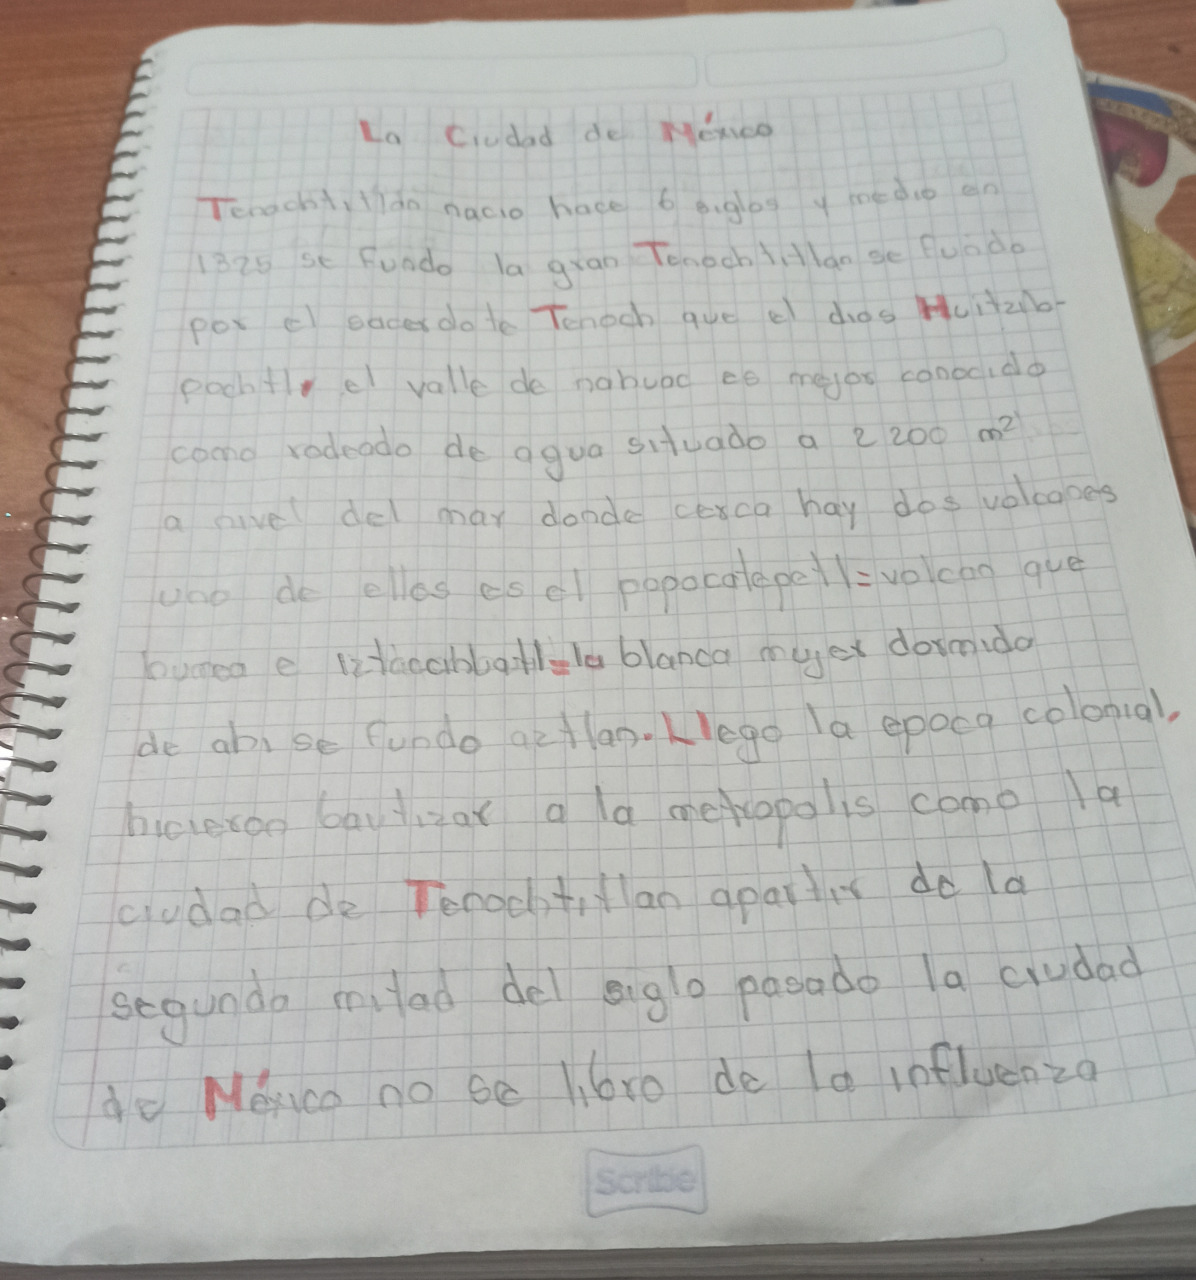 La Ciudad de México
Tenochtitlán nacio hace 6 siglos y medio en
1325 se fundo la gran Tenochtitlan se fundo
por el sacerdote Tenoch que el dios Huitzilo-
pochtli el valle de nahuac es mejor conocido
como rodeado de agua situado a 2 200 m²
a nivel del mar donde cerca hay dos volcanes
uno de ellos es el popocatepetl=volcan que
humea e iztaccihuatl=la blanca mujer dormida
de ahi se fundo aztlan. Llego la epoca colonial.
hicieron bautizar a la metropolis como la
ciudad de Tenochtitlan apartir de la
segunda mitad del siglo pasado la ciudad
de México no se libro de la influenza
Scribe